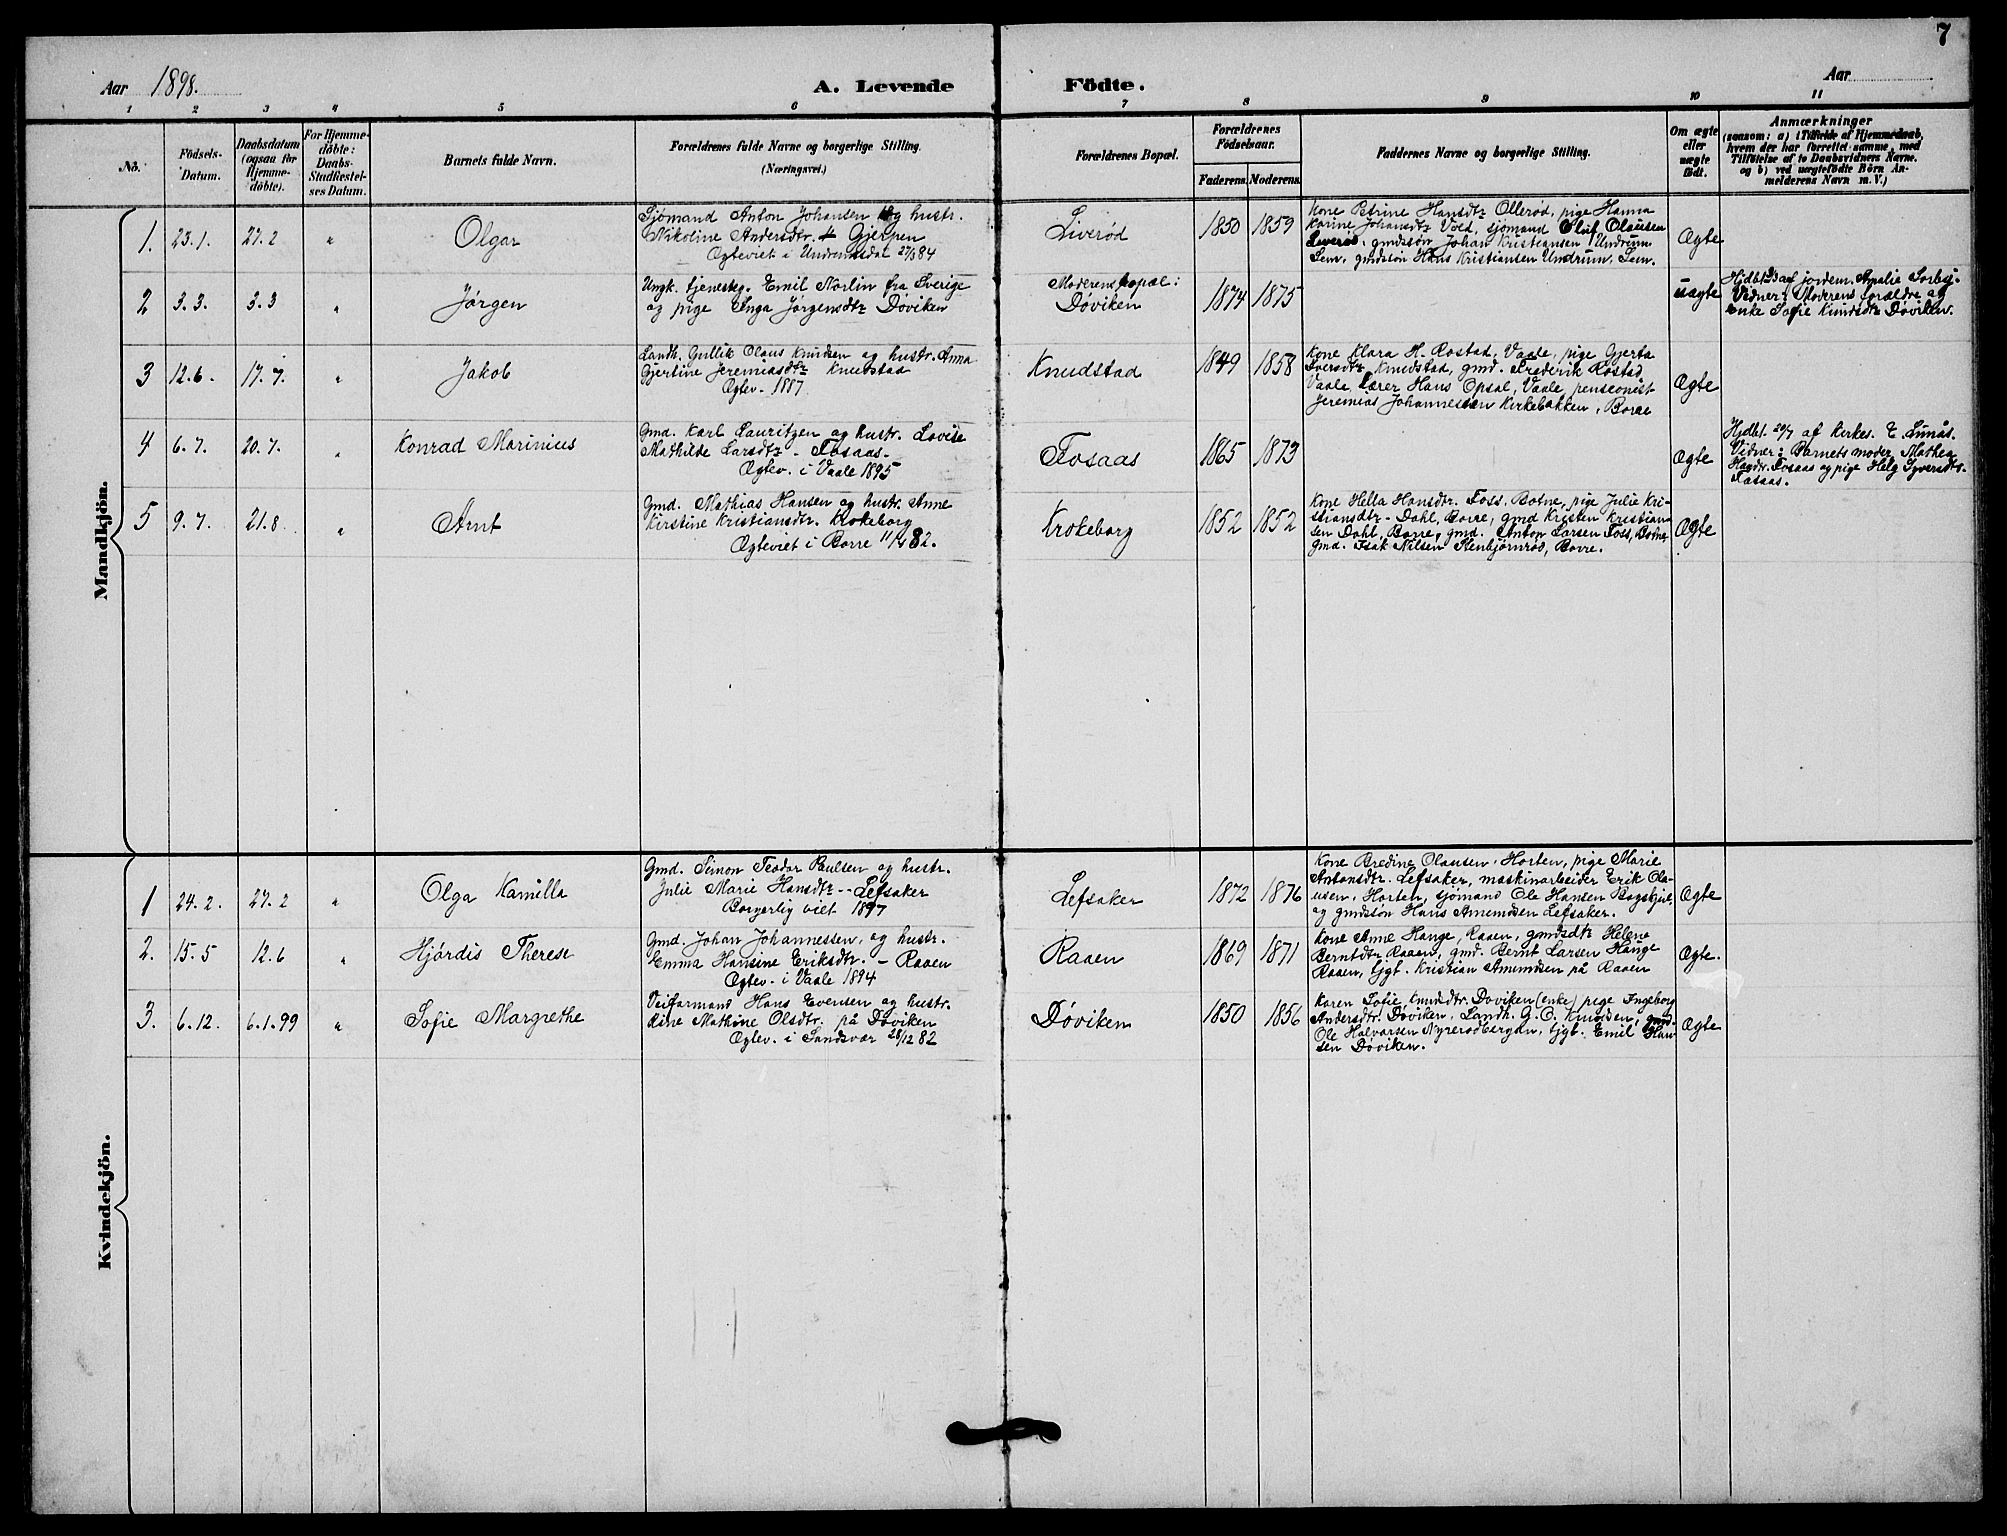 7
Aar 1898.
A. Levende Födte.
Aar
1 2 3 4 5 6 7 8 9 10 11
No.
Födsels-
Datum.
Daabsdatum
(ogsaa for
Hjemme-
döbte).
For Hjemme-
döbte:
Daabs-
Stadfæstel-
ses Datum.
Barnets fulde Navn.
Forældrenes fulde Navne og borgerlige Stilling.
(Næringsvei.)
Forældrenes Bopæl.
Forældrenes
Födselsaar.
Faderens. Moderens.
Faddernes Navne og borgerlige Stilling.
Om ægte
eller
uægte
födt.
Anmærkninger
(saasom: a) i Tilfælde af Hjemmedaab,
hvem der har forrettet samme, med
Tilföielse af to Daabsvidners Navne.
og b) ved uægtefödte Börn An-
melderens Navn m. V.)
Mandkjön.
1. 23.1. 27.2 "
Olgar
Sjömand Anton Johansen og hustr.
Nikoline Andersdtr. Gjerpen
Ægteviet i Undrumsdal 27/3 84
Liverød
1850 1859
Kone Petrine Hansdtr Ollerød, pige Hanna
Karine Johansdtr Vold, sjömand Oluf Olausen
Liverød, gmdssön Johan Kristiansen Undrum
Sem, gmdssön Hans Kristiansen Undrum, Sem.
Ægte
2 3.3. 3.3 "
Jørgen
Ungk. tjenesteg. Emil Norlin fra Sverige
og pige Inga Jørgensdtr Døviken
Moderens bopæl:
Døviken
1874 1875
uægte
Hjdbt. af jordem. Amalie
Vidner: Moderens forældre og
Enke Sofie Knudsdtr Døviken.
3 12.6. 17.7. "
Jakob
Landh. Gullik Olaus Knudsen og hustr. Anna
Gjertine Jeremiasdtr Knudstad
Ægtev. 1887
Knudstad
1849 1858
Kone Klara H. Rostad, Vaale, pige Gjerta
Iversdtr Knudstad, gmd. Frederik Rostad
Vaale, Lærer Hans Opsal, Vaale, penseonist
Jeremias Johannessen Kirkebakken, Borre
Ægte
4 6.7. 20.7. "
Konrad Marinius
Gmd. Karl Lauritzen og hustr. Lovise
Mathilde Larsdtr - Fosaas.
Ægtev. i Vaale 1895
Fosaas
1865 1873
Ægte
Hjdbt. 20/7 af Kirkes. E. Lunås.
Vidner: Barnets moder, Mathea
Hagdr. Fosaas og pige Helg Syversdtr.
Fosaas.
5 9.7. 21.8. "
Arnt
Gmd. Mathias Hansen og hustr. Anne
Kirstine Kristiansdtr. Krokeborg
Ægteviet i Borre 11/4 82.
Krokeborg
1852 1852
Kone Hella Hansdtr. Foss. Botne, pige Julie Kri-
stiansdtr - Dahl, Borre, gmd Kristen Kristian-
sen Dahl, Borre, gmd. Anton Larsen Foss, Botne,
gmd. Isak Nilsen Stenbjørnrød, Borre.
Ægte
Kvindekjön.
1 24.2. 27.2 "
Olga Kamilla
Gmd. Simon Teodor Paulsen og hustr.
Julie Marie Hansdtr - Lefsaker
Borgerlig viet 1897
Lefsaker
1872 1876
Kone Bredine Olausen, Horten, pige Marie
Antonsdtr. Lefsaker, maskinarbeider Erik Ola-
usen, Horten, sjömand Ole Hansen Bogskjul,
og gmdssön Hans Amundsen Lefsaker.
Ægte
2. 15.5 12.6 "
Hjördis Therese
Gmd. Johan Johannessen, og hustr.
Emma Hansine Eriksdtr. - Raaen
Ægtev. i Vaale 1894
Raaen
1869 1871
Kone Anne Hauge, Raaen, gmdsdtr Helene
Berntdtr Raaen, gmd. Bernt Larsen Hauge
Raaen, tjgt. Kristian Amundsen på Raaen
Ægte.
3. 6.12. 6.1.99 "
Sofie Margrethe
Veiformand Hans Evensen og hustr.
Rine Mathine Olsdtr. på Døviken
Ægtev. i Sandsvær 28/12 82
Døviken
1850 1856
Karen Sofie Knudsdtr. Doviken (enke) pige Ingeborg
Andersdtr. Døviken, Landh. G. O. Knudsen, gmd.
Ole Halvorsen Nyrerødbergan, tjgt. Emil Han-
sen Døviken.
Ægte